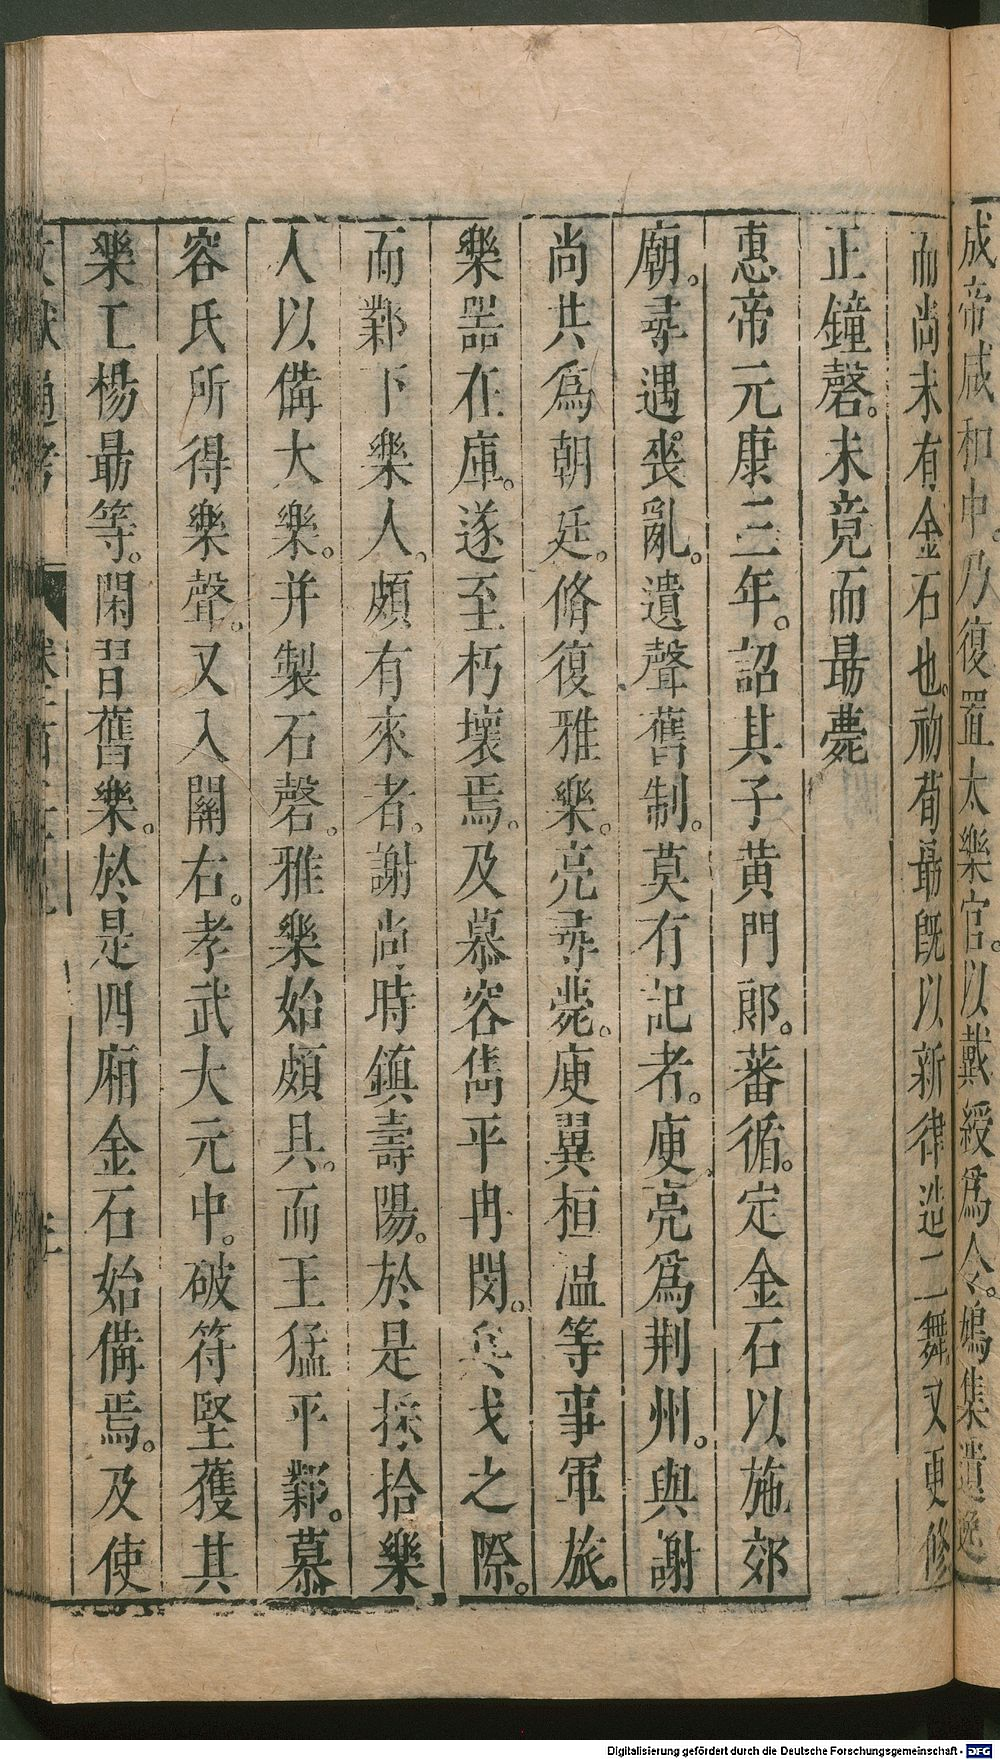 成帝咸和中。乃復置太樂官。以戴綬爲令。鳩集遺逸
而尚未有金石也。初荀勗既以新律造二舞。又更修
正鐘磬。未竟而勗薨
惠帝元康三年。詔其子黃門郎。蕃循。定金石以施郊
廟。尋遇喪亂。遺聲舊制。莫有記者。庾亮爲荆州。與謝
尚共爲朝廷。脩復雅樂。亮尋薨。庾翼桓温等事軍旅。
樂器在庫。遂至朽壞焉。及慕容雋平冉閔。兵戈之際。
而鄴下樂人。頗有來者。謝尚時鎮壽陽。於是採拾樂
人以備大樂。并製石磬。雅樂始頗具。而王猛平鄴。慕
容氏所得樂聲。又入關右。孝武大元中。破符堅獲其
樂工楊最等。閑習舊樂。於是四廂金石始備焉。及使
文獻通考
Digitalisierung gefördert durch die Deutsche Forschungsgemeinschaft - DFG